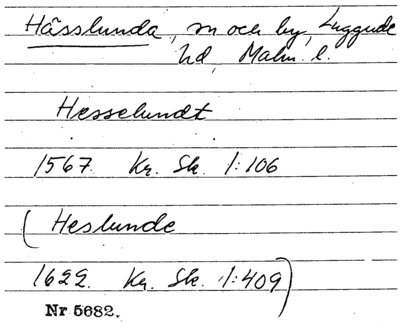 Hässlunda, sn och by, Luggude
hd, Malm. l.
Hesselundt
1567. Kr. Sk. 1:106
(Heslunde
1622. Kr. Sk. 1:409)
Nr 5682.